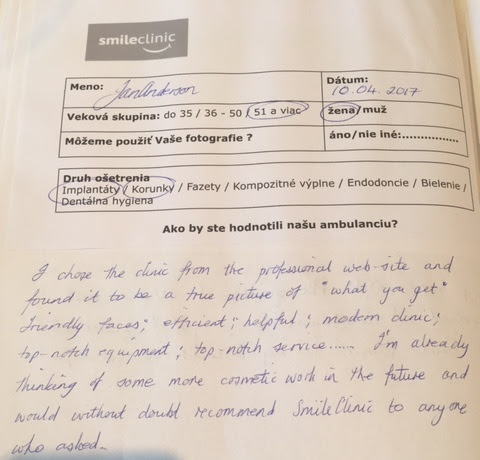 smileclinic
Meno: Jan Anderson
Dátum: 10.04.2017
Veková skupina: do 35 / 36 - 50 / 51 a viac
žena/muž
Môžeme použiť Vaše fotografie ?
áno/nie iné:...............
Druh ošetrenia
Implantáty / Korunky / Fazety / Kompozitné výplne / Endodoncie / Bielenie /
Dentálna hygiena
Ako by ste hodnotili našu ambulanciu?
I chose the clinic from the professional web-site and
found it to be a true picture of "what you get"
Friendly faces; efficient; helpful; modern clinic;
top-notch equipment; top-notch service...... I'm already
thinking of some more cosmetic work in the future and
would without doubt recommend SmileClinic to anyone
who asked.